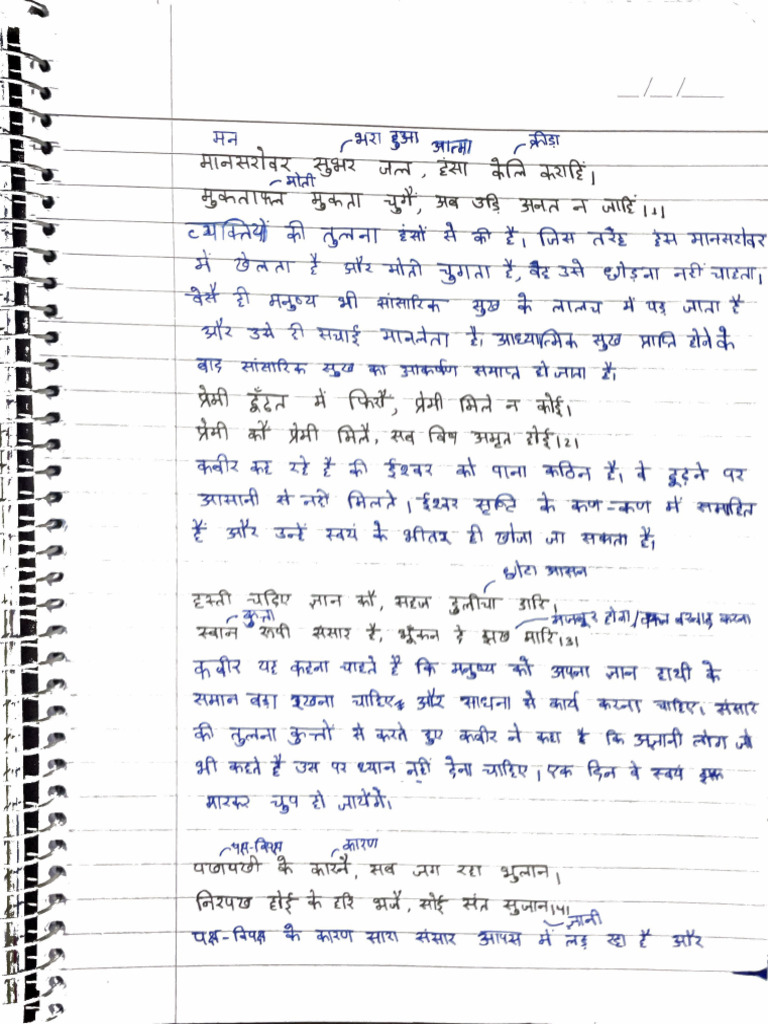 मन भरा हुआ आत्मा क्रीड़ा
मानसरोवर सुभर जल, हंसा केलि कराहिं।
मोती
मुकताफल मुकता चुगैं, अब उड़ि अनत न जाहिं।1।
व्यक्तियों की तुलना हंसों से की है। जिस तरह हंस मानसरोवर
में खेलता है और मोती चुगता है, वह उसे छोड़ना नहीं चाहता।
वैसे ही मनुष्य भी सांसारिक सुख के लालच में पड़ जाता है
और उसे ही सचाई मानलेता है। आध्यात्मिक सुख प्राप्ति होने के
बाद सांसारिक सुख का आकर्षण समाप्त हो जाता है।
प्रेमी ढूँढ़त में फिरौं, प्रेमी मिले न कोई।
प्रेमी कौं प्रेमी मिलै, सब विष अमृत होई।2।
कबीर कह रहे है की ईश्वर को पाना कठिन है। वे ढूढ़ने पर
आसानी से नही मिलते। ईश्वर सृष्टि के कण-कण में समाहित
हैं और उन्हें स्वयं के भीतर ही खोजा जा सकता है।
छोटा आसन
हस्ती चढ़िए ज्ञान कौ, सहज दुलीचा डारि।
कुत्ता मजबूर होना/वक्त बरबाद करना
स्वान रूपी संसार है, भूँकन दे झख मारि।3।
कबीर यह कहना चाहते है कि मनुष्य को अपना ज्ञान हाथी के
समान बड़ा रखना चाहिए और साधना से कार्य करना चाहिए। संसार
की तुलना कुत्तों से करते हुए कबीर ने कहा है कि अज्ञानी लोग जो
भी कहते है उस पर ध्यान नहीं देना चाहिए। एक दिन वे स्वयं झक
मारकर चुप हो जायेंगे।
पक्ष-विपक्ष कारण
पखापखी के कारनै, सब जग रहा भुलान।
निरपख होई के हरि भजै, सोई संत सुजान।4।
ज्ञानी
पक्ष-विपक्ष के कारण सारा संसार आपस में लड़ रहा है और